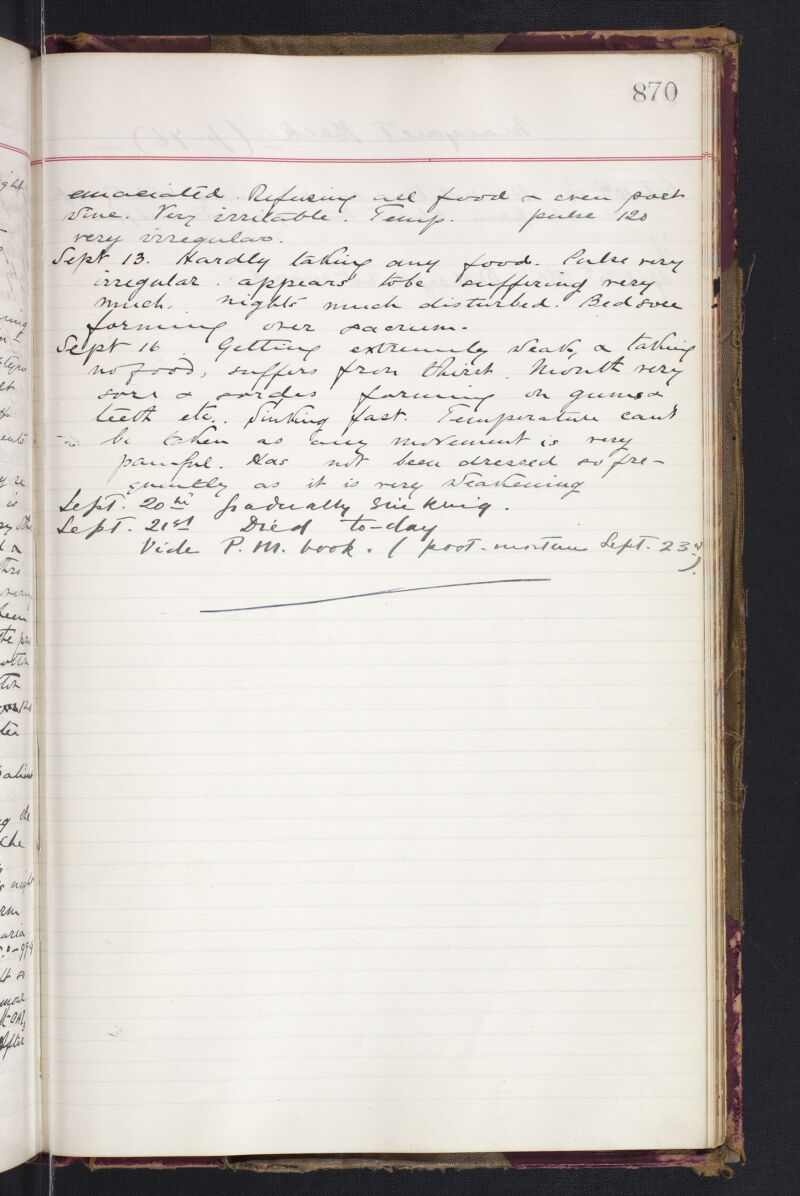 870
emaciated. Refusing all food & even port
wine. Very irritable. Temp. pulse 120
very irregular.
Sept 13. Hardly taking any food. Pulse very
irregular. appears to be suffering very
much. nights much disturbed. Bedsore
forming over sacrum.
Sept 16 Getting extremely weak, & taking
no food, suffers from thirst. Mouth very
sore & sordes forming on gums &
teeth etc. Sinking fast. Temperature can't
be taken as any movement is very
painful. Has not been dressed so fre-
quently as it is very weakening
Sept. 20th gradually sinking.
Sept. 21st Died to-day
Vide P.M. book. (post-mortem Sept. 23rd).